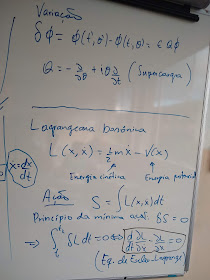 Variação
δϕ = ϕ(t', θ') - ϕ(t, θ) = ε Q ϕ
Q = - ∂/∂θ + iθ ∂/∂t (Supercarga)
Lagrangeana bosônica
L(x, ẋ) = 1/2 mẋ - V(x)
ẋ = dx/dt
Energia cinética Energia potencial
Ação S = ∫ L(x, ẋ) dt
Princípio da mínima ação: δS = 0
⇒ ∫ δL dt = 0 ⇔ d/dt ∂L/∂ẋ - ∂L/∂x = 0
(Eq. de Euler-Lagrange)